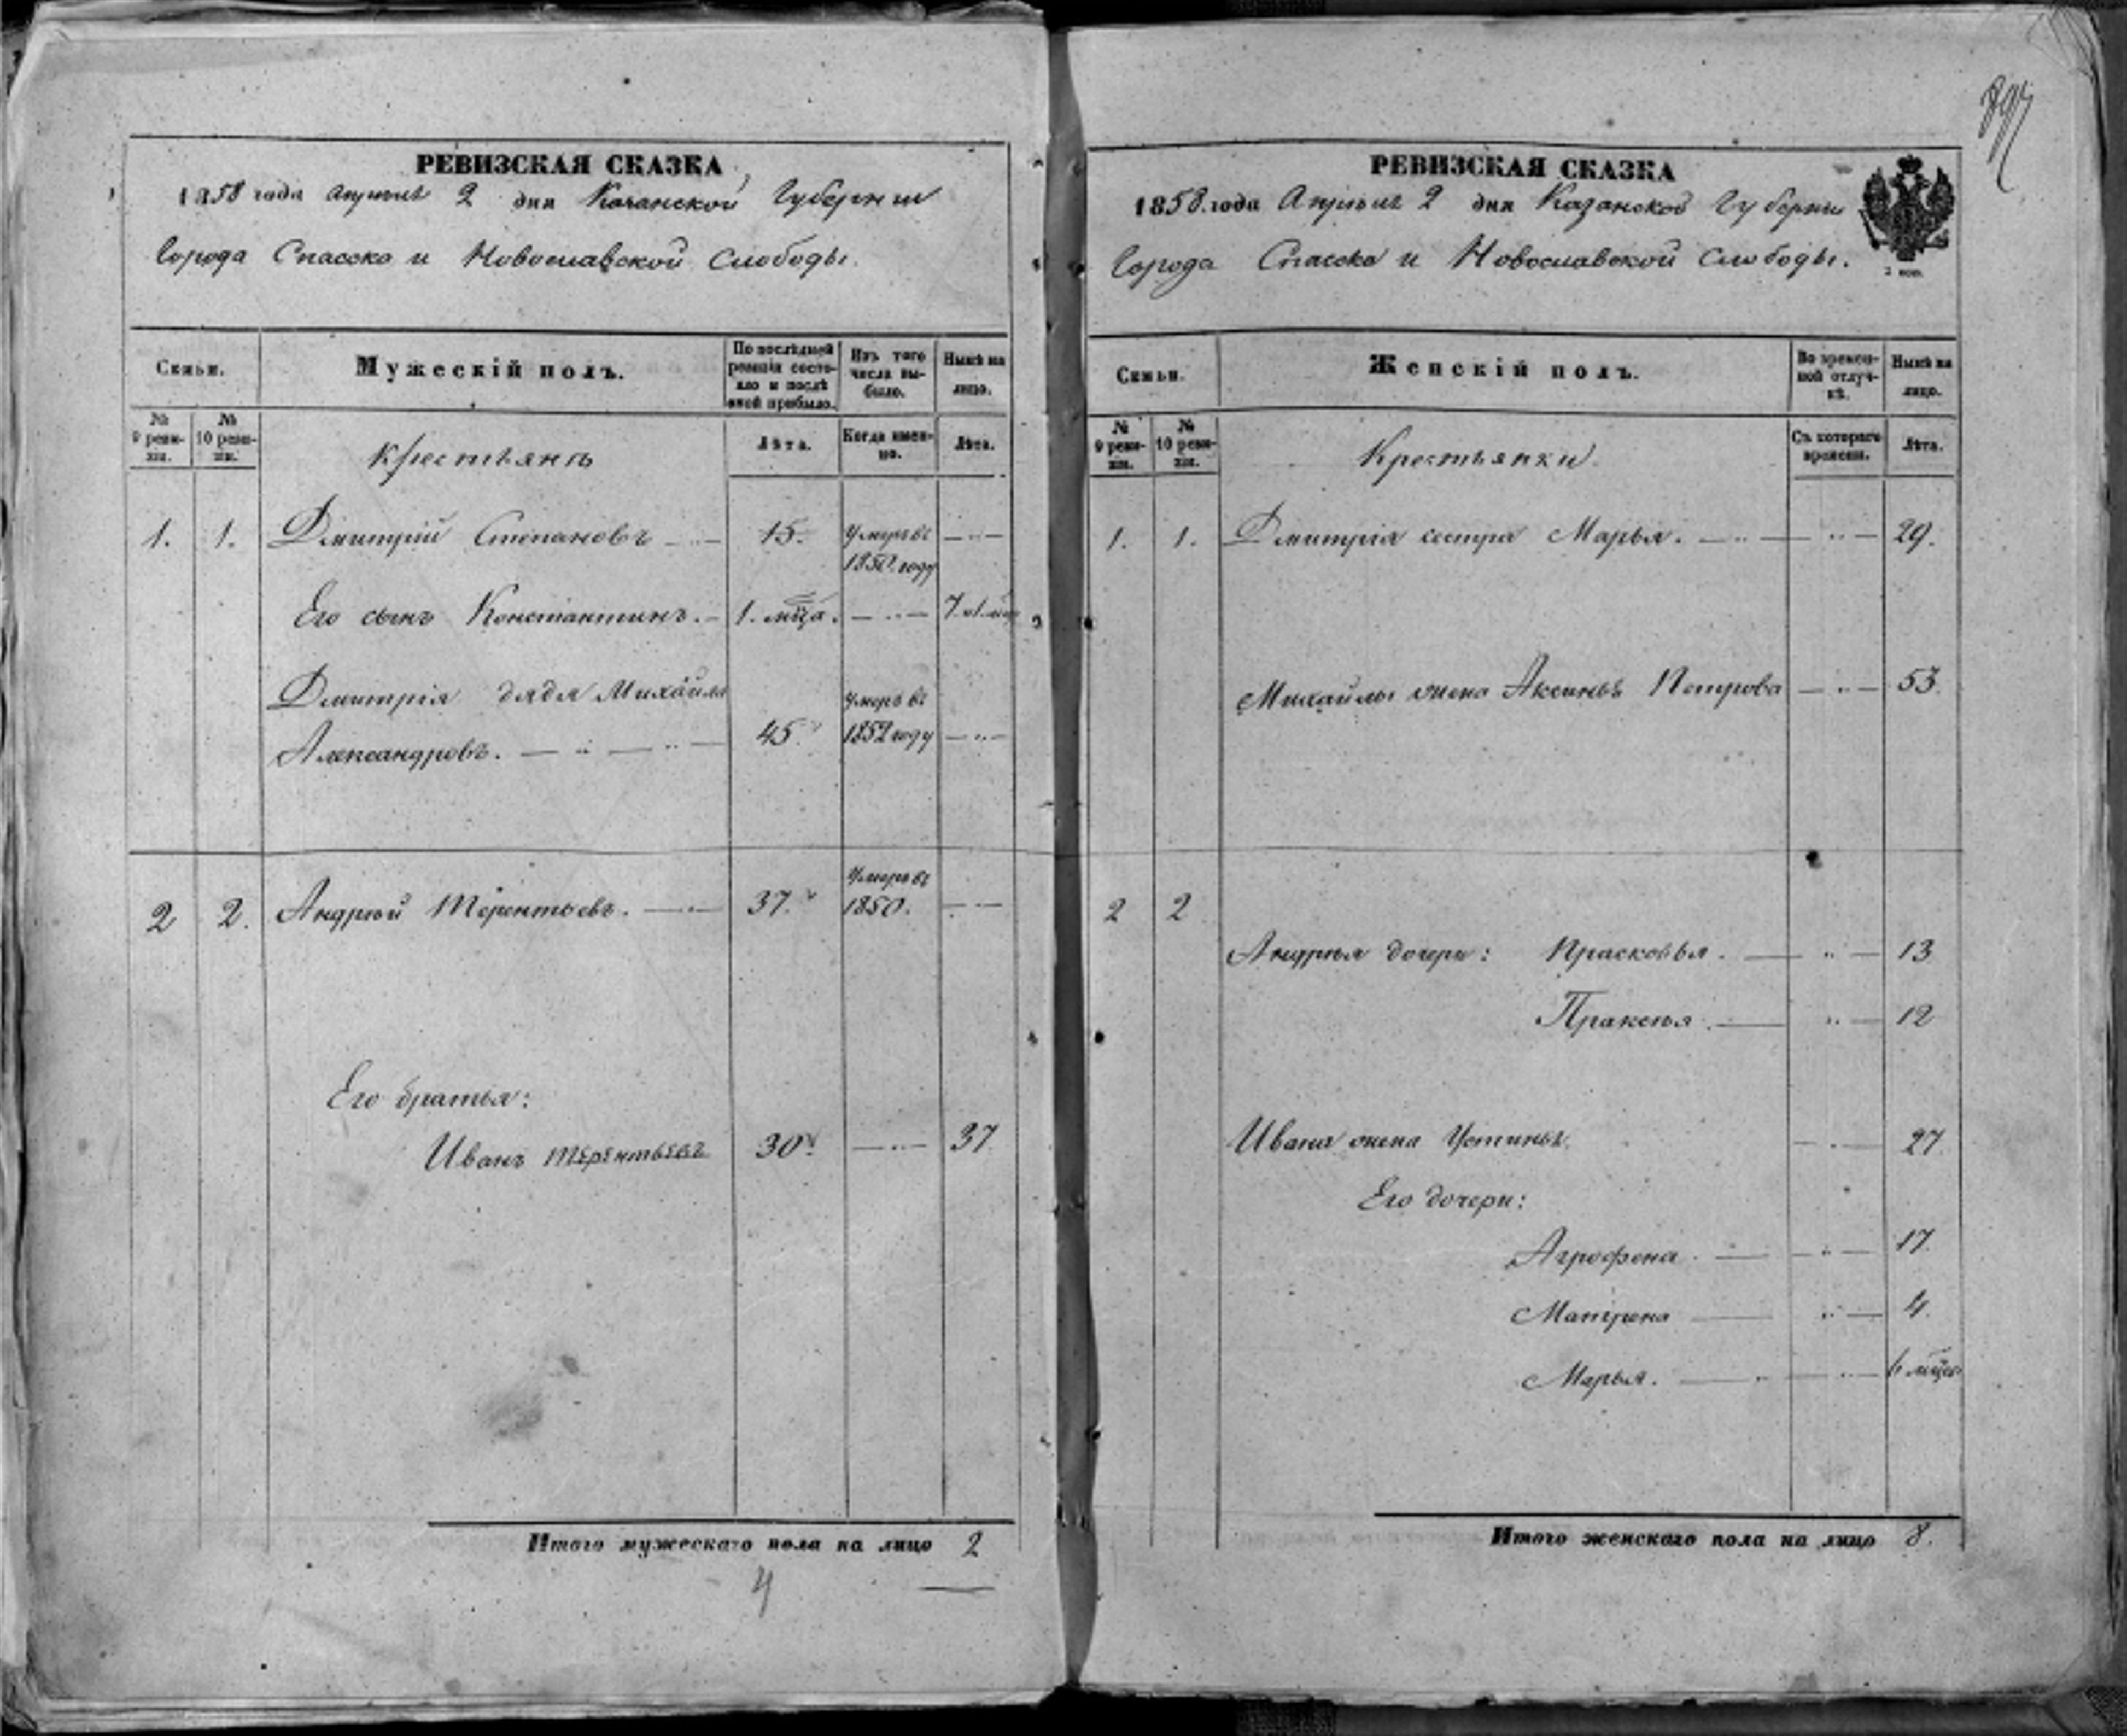 РЕВИЗСКАЯ СКАЗКА
1858 года Апрѣля 2 дня Казанской Губернии
Города Спасска и Новославской Слободы.
Семьи.
Мужескій полъ.
По послѣдней ревизіи состояло и послѣ оной прибыло.
Изъ того числа выбыло.
Нынѣ на лицо.
№ 9 ревизіи.
№ 10 ревизіи.
Крестьянъ
Лѣта.
Когда именно.
Лѣта.
1. 1. Дмитрій Степановъ 15. Умеръ въ 1850 году
Его сынъ Константинъ. 1. мца.
Дмитрія дядя Михайла
Александровъ. 45. Умеръ въ 1852 году
2 2. Андрей Терентьевъ. 37. Умеръ въ 1850.
Его братья:
Иванъ Терентьевъ 30. 37
Итого мужескаго пола на лицо 2
4
РЕВИЗСКАЯ СКАЗКА
1858 года Апрѣля 2 дня Казанской Губернии
Города Спасска и Новославской Слободы.
Семьи.
Женскій полъ.
Во временной отлучкѣ.
Нынѣ на лицо.
№ 9 ревизіи.
№ 10 ревизіи.
Крестьянки.
Съ котораго времени.
Лѣта.
1. 1. Дмитрія сестра Марья. 29.
Михайлы жена Аксинья Петрова 53.
2 2
Андрея дочери: Прасковья. 13
12
Ивана жена Устинья 27.
Его дочери:
Агрофена 17.
Матрена 4.
Марья.
Итого женскаго пола на лицо 8.